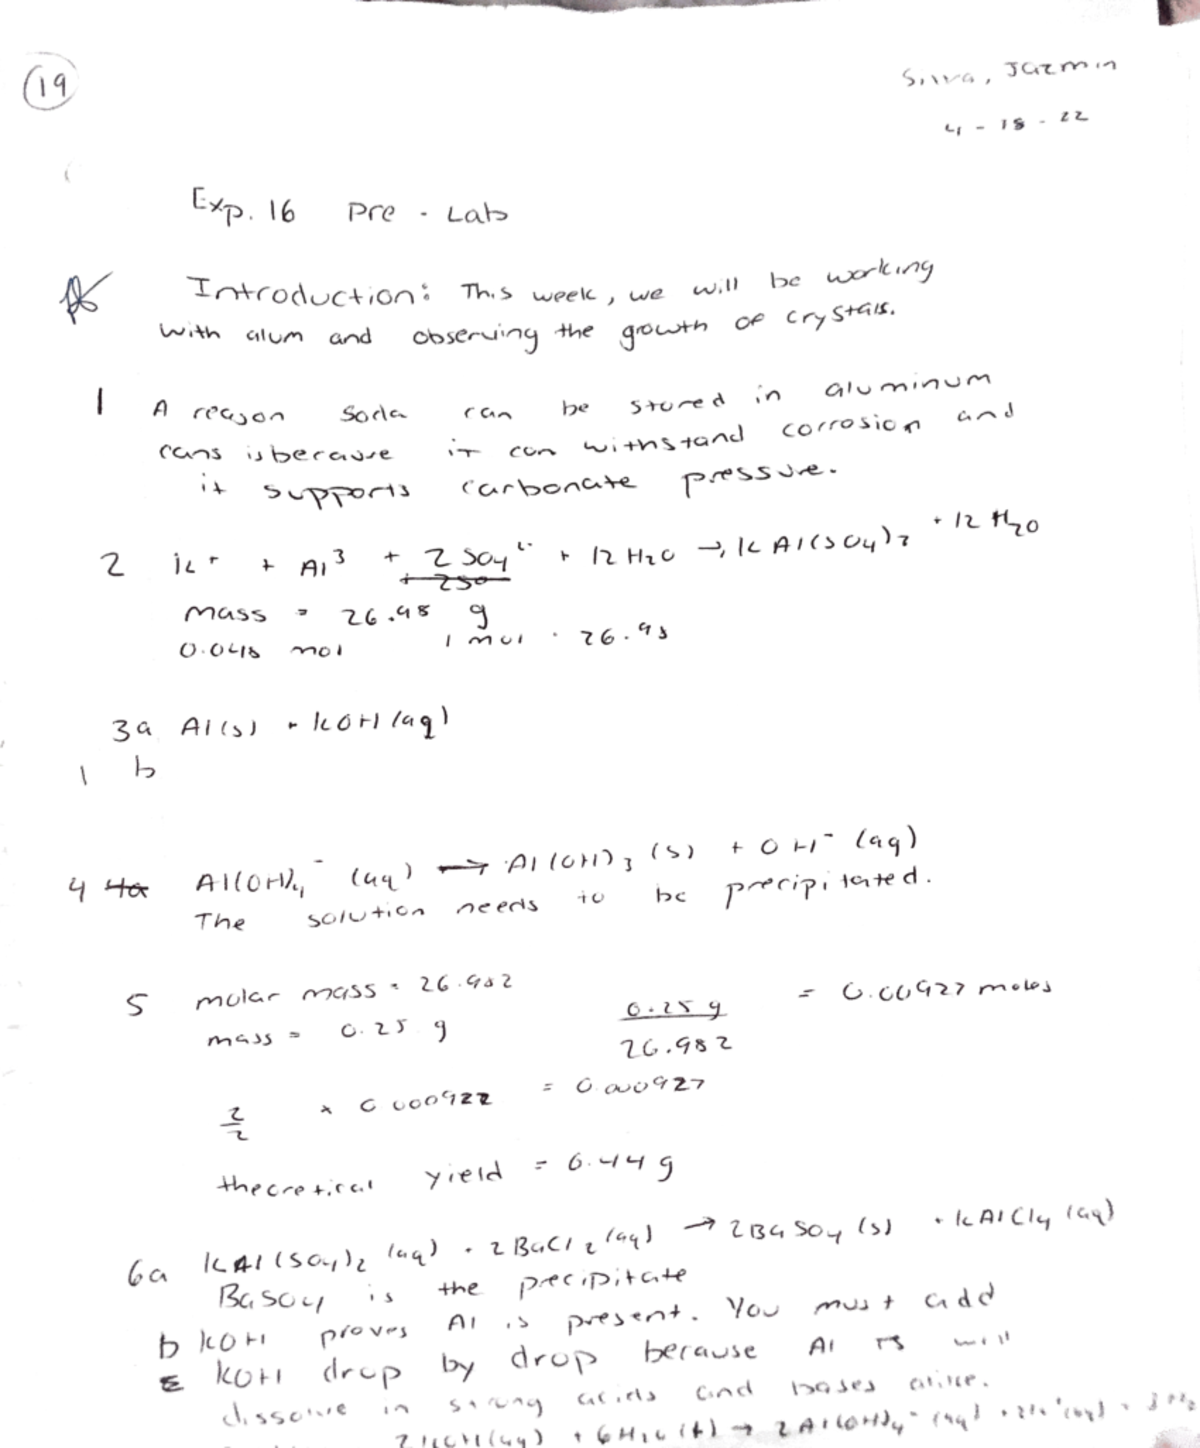 19
Silva, Jazmin
4-18-22
Exp. 16 Pre-Lab
Introduction: This week, we will be working
with alum and observing the growth of crystals.
1 A reason soda can be stored in aluminum
cans is because it can withstand corrosion and
it supports carbonate pressure.
2 K+ + Al3 + 2 SO4 + 12 H2O → KAl(SO4)2 • 12 H2O
+ 250
mass = 26.98 g
0.048 mol 1 mol · 26.98
3a Al(s) + KOH(aq)
1 b
4 4a Al(OH)4- (aq) → Al(OH)3 (s) + OH- (aq)
The solution needs to be precipitated.
5 molar mass = 26.982
mass = 0.25 g
0.25 g = 0.00927 moles
26.982
2/2 x 0.000922 = 0.000927
theoretical yield = 6.44 g
6a KAl(SO4)2 (aq) + 2BaCl2 (aq) → 2BaSO4 (s) + KAlCl4 (aq)
BaSO4 is the precipitate
b KOH proves Al is present. You must add
KOH drop by drop because Al is will
dissolve in strong acids and bases alike.
2KOH(aq) + 6H2O(l) → 2Al(OH)4- (aq) + 2K+(aq) + 3H2